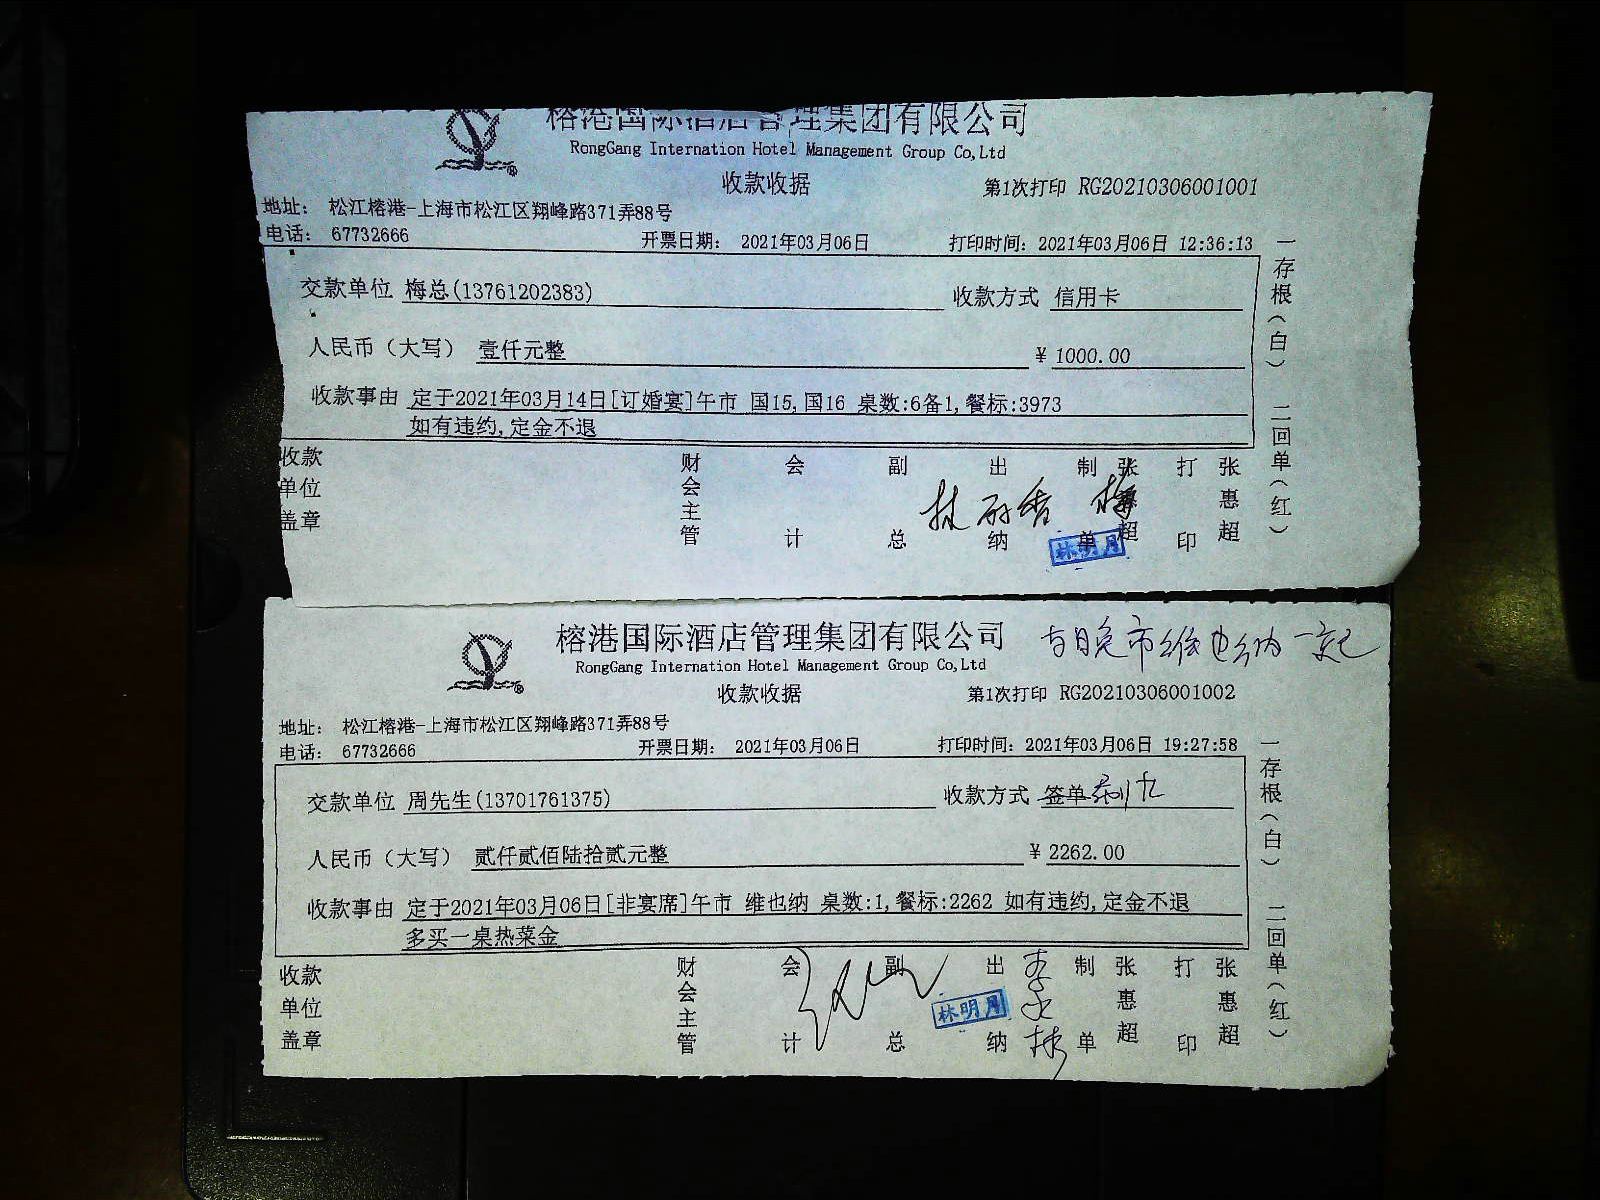 榕港国际酒店管理集团有限公司
RongGang Internation Hotel Management Group Co,Ltd
收款收据
第1次打印 RG20210306001001
地址： 松江榕港-上海市松江区翔峰路371弄88号
电话： 67732666 开票日期： 2021年03月06日 打印时间：2021年03月06日 12:36:13
交款单位 梅总(13761202383) 收款方式 信用卡
人民币（大写） 壹仟元整 ¥ 1000.00
收款事由 定于2021年03月14日[订婚宴]午市 国15,国16 桌数:6备1,餐标:3973
如有违约,定金不退
收款单位盖章 财会主管 会计 副总 出纳 制单 张惠超 打印 张惠超
林明月
一存根（白） 二回单（红）
榕港国际酒店管理集团有限公司
RongGang Internation Hotel Management Group Co,Ltd
收款收据
第1次打印 RG20210306001002
地址： 松江榕港-上海市松江区翔峰路371弄88号
电话： 67732666 开票日期： 2021年03月06日 打印时间：2021年03月06日 19:27:58
交款单位 周先生(13701761375) 收款方式 签单
人民币（大写） 贰仟贰佰陆拾贰元整 ¥ 2262.00
收款事由 定于2021年03月06日[非宴席]午市 维也纳 桌数:1,餐标:2262 如有违约,定金不退
多买一桌热菜金
收款单位盖章 财会主管 会计 副总 出纳 制单 张惠超 打印 张惠超
林明月
一存根（白） 二回单（红）